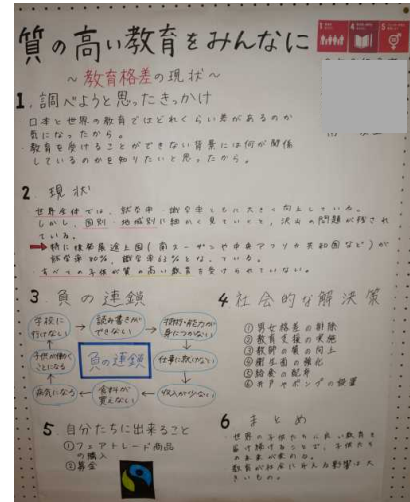 質の高い教育をみんなに
～教育格差の現状～
1. 調べようと思ったきっかけ
日本と世界の教育ではどれくらい差があるのか
気になったから。
・教育を受けることができない背景には何が関係
しているのかを知りたいと思ったから。
2 現状
世界全体では、就学率・識字率ともに大きく向上している。
しかし、国別・地域別に細かく見ていくと、沢山の問題が残され
ている。
➡特に後発開発途上国(南スーダンや中央アフリカ共和国など)が
就学率80%、識字率63%となっている。
すべての子供が質の高い教育を受けられていない。
3 負の連鎖
学校に
行けない
読み書きが
できない
技術・能力が
身につかない
仕事に就けない
収入が少ない
食料が
買えない
病気になる
子供が働く
ことになる
負の連鎖
4 社会的な解決策
①男女格差の排除
②教育支援の実施
③教師の質の向上
④衛生面の強化
⑤給食の配布
⑥井戸やポンプの設置
5 自分たちに出来ること
①フェアトレード商品
の購入
②募金
6 まとめ
・世界の子供たちに良い教育を
届け続けることで、子供たち
の未来が変わる。
教育が社会に与える影響は大
きいもの。